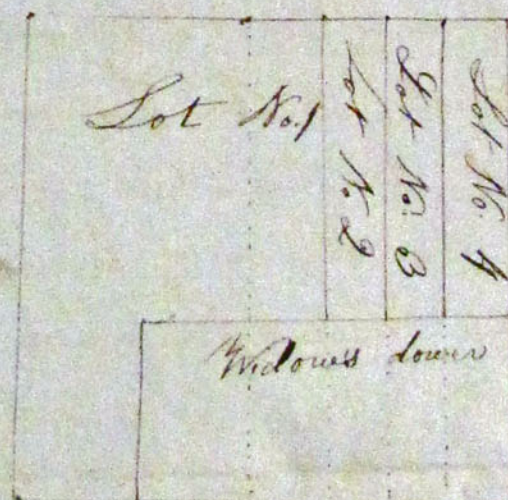 Lot No. 1
Lot No. 2
Lot No. 3
Lot No. 4
Widows dower